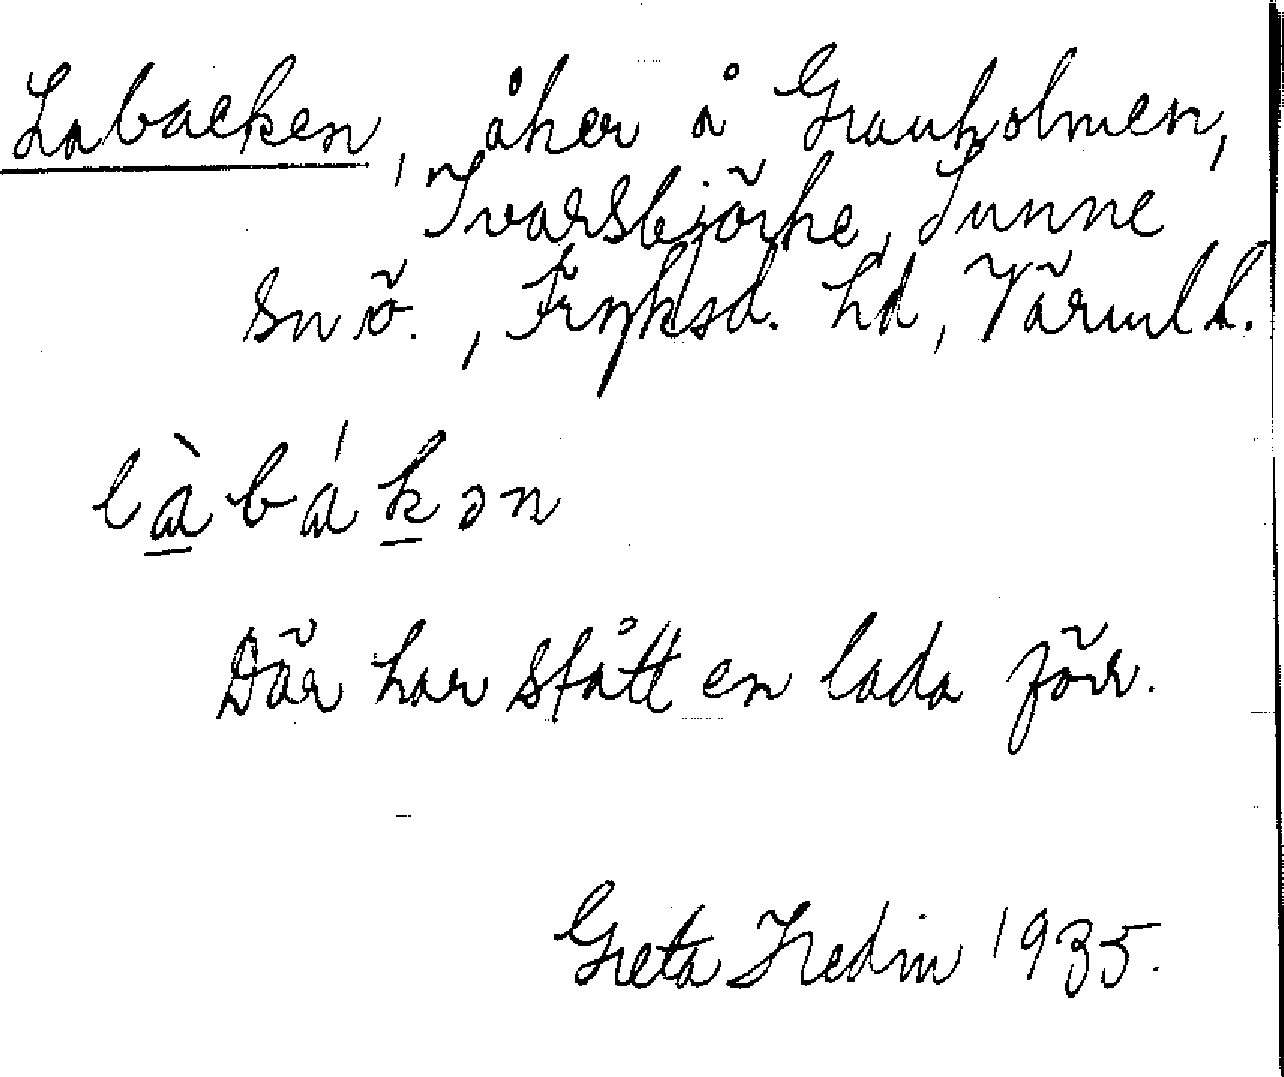 Labacken, åker å Granholmen,
Ivarsbjörke, Sunne
sn ö., Fryksd. hd, Värml l.
làbákən
Där har stått en lada förr.
Greta Hedin 1935.